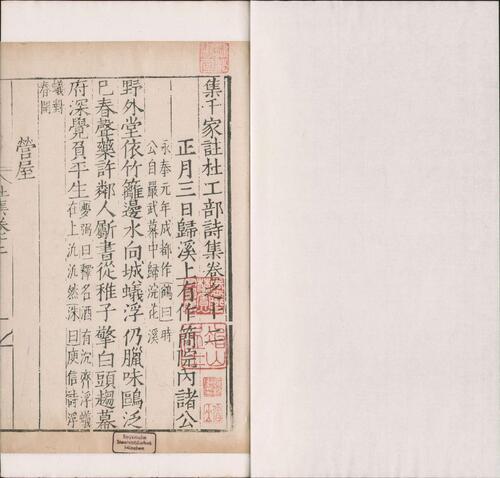 集千家註杜工部詩集卷之十
正月三日歸溪上有作簡院內諸公
永泰元年成都作鶴曰時
公自嚴武幕中歸浣花溪
野外堂依竹籬邊水向城蟻浮仍臘味鷗泛
已春聲藥許鄰人斸書從稚子擎白頭趨幕
府深覺負平生
夢弼曰釋名酒有沉齊浮蟻
在上汎汎然洙曰庾信詩浮
蟻對
春開
營屋
Bayerische
Staatsbibliothek
München